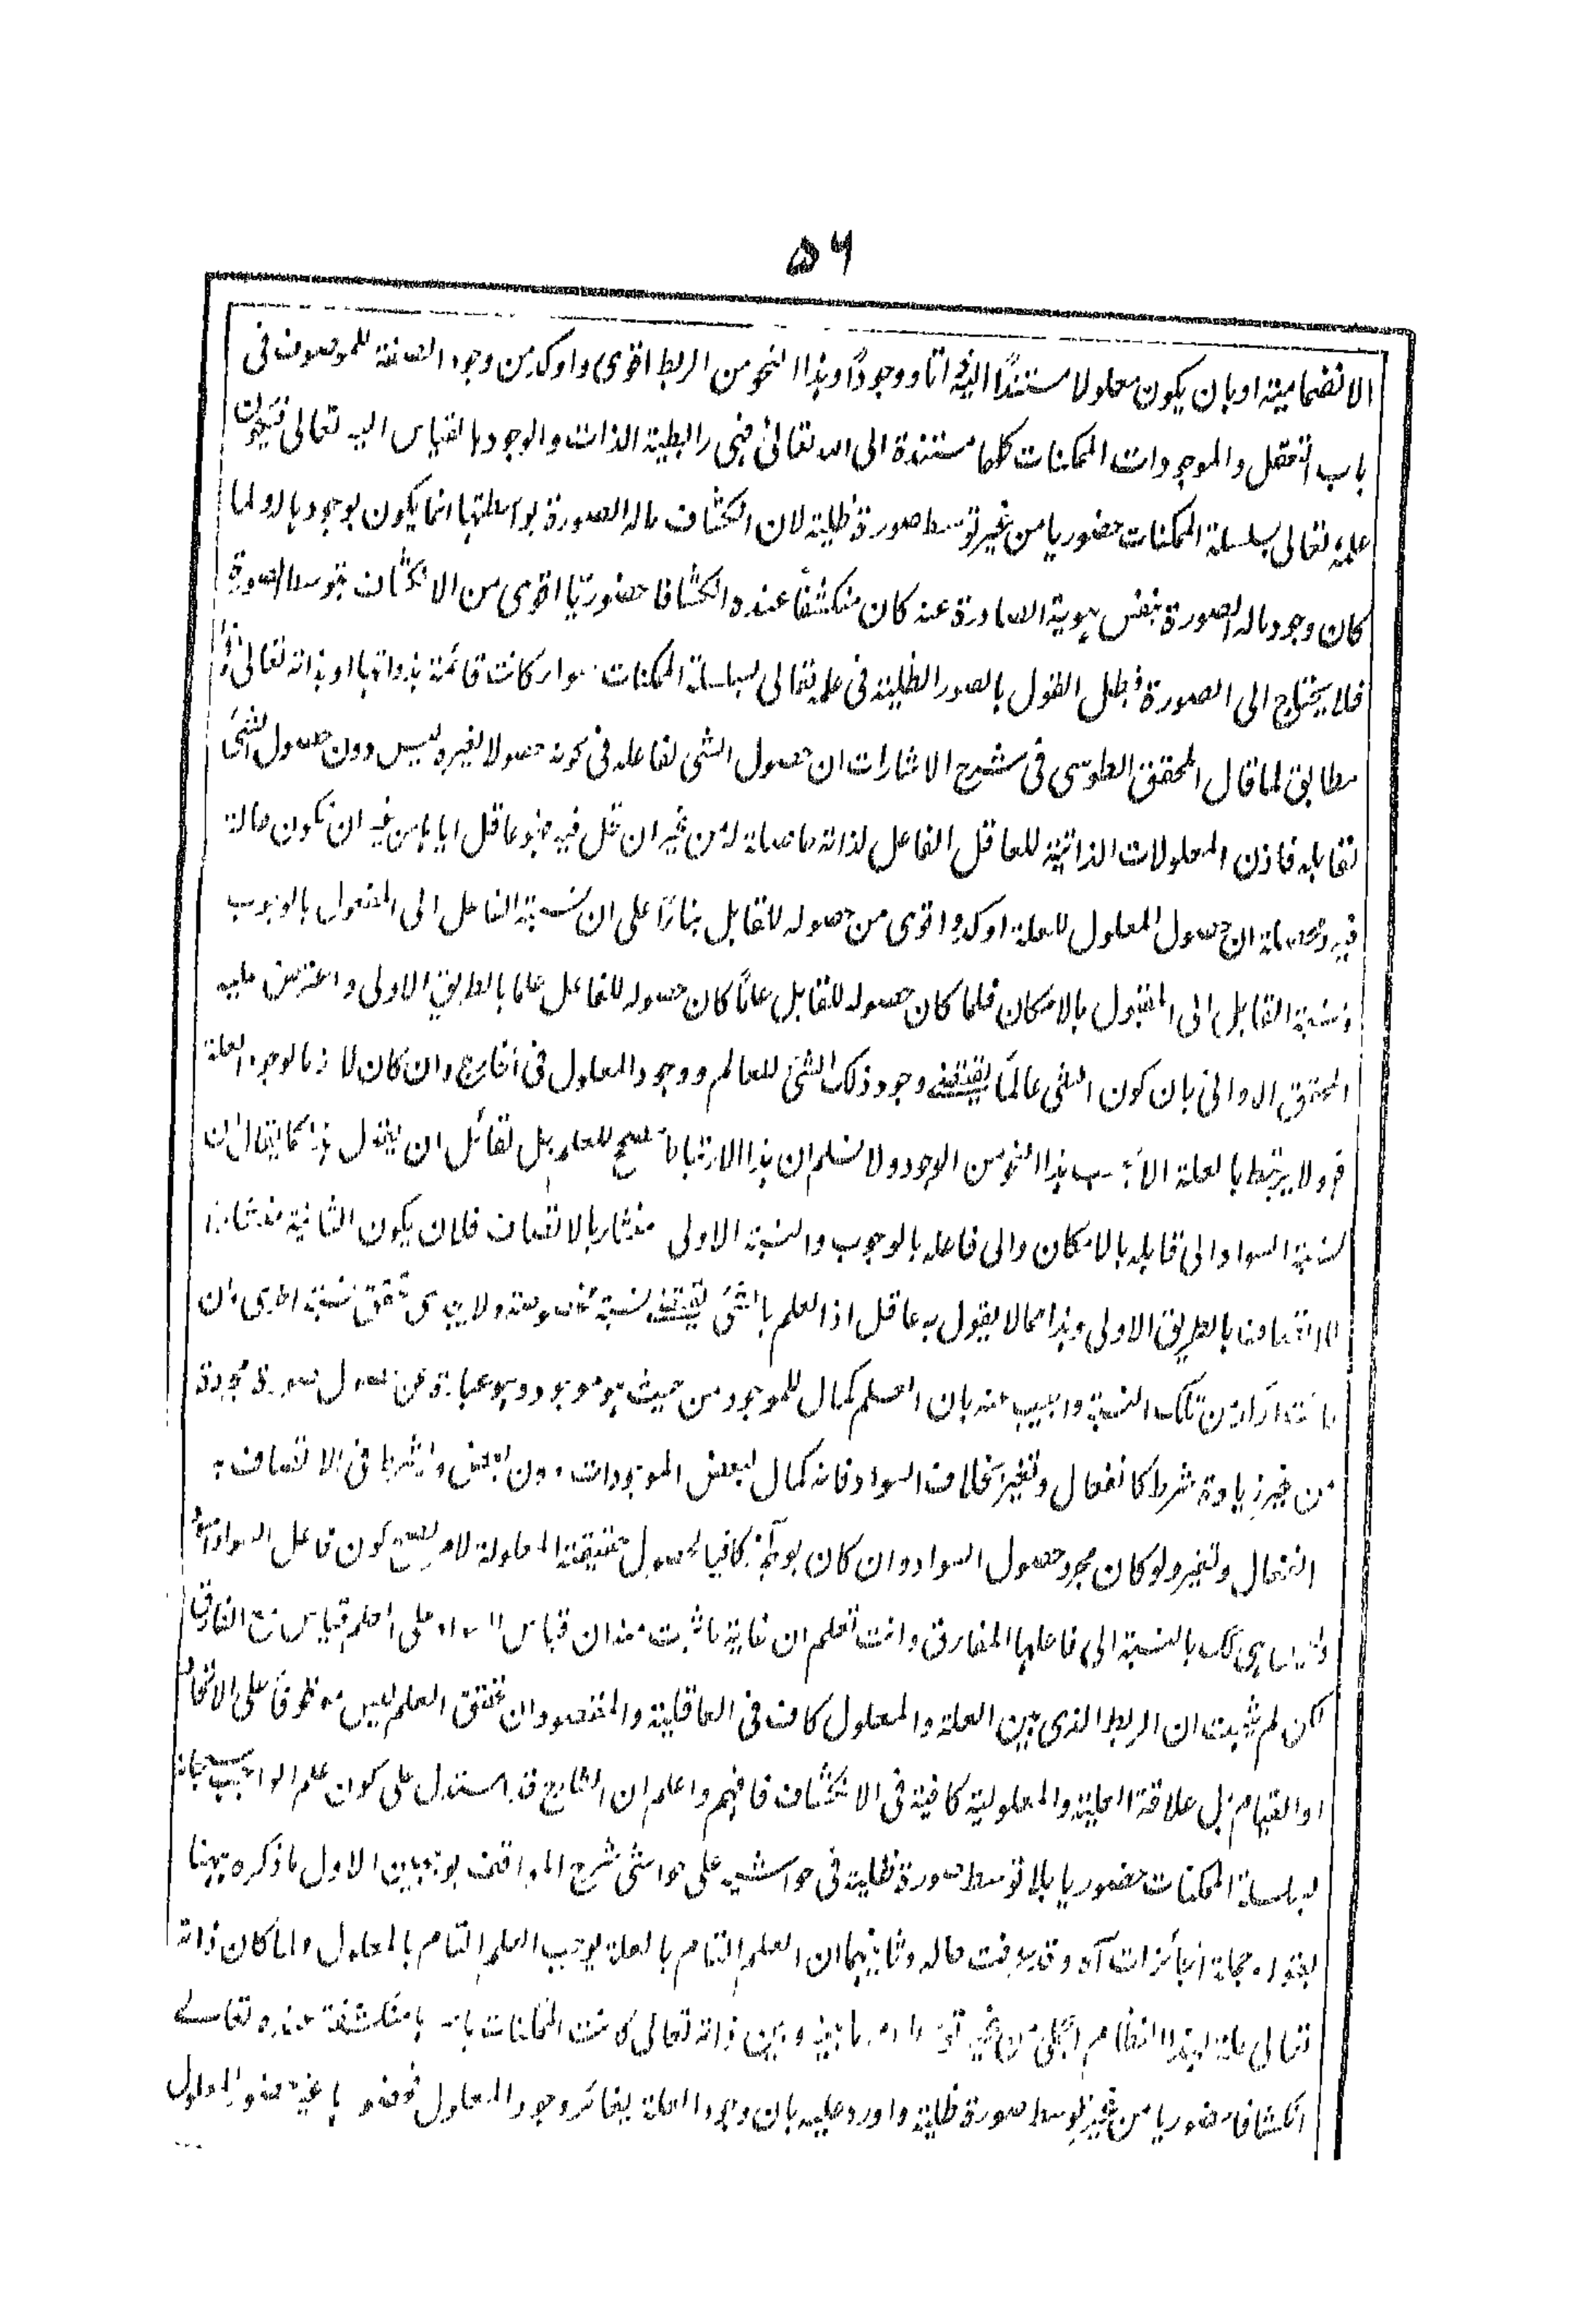 ۵۶
الانضمامية او بان يكون معلولا مستندًا اليه ذاتا ووجودًا وهذا النحو من الربط اقوى واوكد من وجود الصفة للموصوف فى
باب التعقل والموجودات الممكنات كلها مستندة الى الله تعالى فهى رابطية الذات والوجود بالقياس اليه تعالى فيكون
علمه تعالى بسلسلة الممكنات حضوريا من غير توسط صورة ظلية لان انكشاف ماله الصورة بواسطتها انما يكون بوجودها له ولما
كان وجود ماله الصورة بنفس هويته الصادرة عنه كان منكشفًا عنده انكشافا حضوريًا اقوى من الانكشاف بتوسط الصورة
فلا يحتاج الى الصورة فبطل القول بالصور الظلية فى علمه تعالى بسلسلة الممكنات سواء كانت قائمة بذواتها او بذاته تعالى
مطابق لما قال المحقق الطوسى فى شرح الاشارات ان حصول الشئ لفاعله فى كونه حصولا لغيره ليس دون حصول الشئ
لقابله فاذن المعلولات الذاتية للعاقل الفاعل لذاته حاصلة له من غير ان تحل فيه فهو عاقل اياها من غير ان تكون حالة
فيه ومحصله ان حصول المعلول للعلة اوكد واقوى من حصوله للقابل بناءً على ان نسبة الفاعل الى المفعول بالوجوب
ونسبة القابل الى المقبول بالامكان فلما كان حصوله للقابل علمًا كان حصوله للفاعل علما بالطريق الاولى واعترض عليه
المحقق الدوانى بان كون الشئ عالمًا يقتضى وجود ذلك الشئ للعالم ووجود المعلول فى الخارج وان كان لازما لوجود العلة
فهو لا يرتبط بالعلة الا بحسب هذا النحو من الوجود ولا نسلم ان هذا الارتباط مصحح للعلم بل لقائل ان يقول هذا كما يقال ان
نسبة السواد الى قابله بالامكان والى فاعله بالوجوب والنسبة الاولى منشأ بالاتصاف فلان يكون الثانية منشأ
الاتصاف بالطريق الاولى وهذا مما لا يقول به عاقل اذ العلم بالشئ يقتضى نسبة مخصوصة ولا يجدى تحقق نسبة اخرى وان
من تلك النسبة واجيب عنه بان العلم كمال للموجود من حيث هو موجود وهو عبارة عن حصول صورة مجردة
من غير زيادة شرط كانفعال وتغير بخلاف السواد فانه كمال لبعض الموجودات دون البعض وشرط فى الاتصاف به
انفعال وتغير ولو كان مجرد حصول السواد وان كان بوجه كافيا لحصول حقيقة المعلولة له لصح كون فاعل السواد اسود
وليس هى كك بالنسبة الى فاعلها المفارق وانت تعلم ان غاية ما ثبت منه ان قياس السواد على العلم قياس مع الفارق
لكن لم يثبت ان الربط الذى بين العلة والمعلول كاف فى العاقلية والمقصود ان تحقق العلم ليس موقوفا على الاتحاد
او القيام بل علاقة العلية والمعلولية كافية فى الانكشاف فافهم واعلم ان الشارح قد استدل على كون علم الواجب سبحانه
بسلسلة الممكنات حضوريا بلا توسط صورة ظلية فى حواشيه على حواشى شرح المواقف بوجهين الاول ما ذكره ههنا
بقوله آه وقد عرفت حاله وثانيهما ان العلم التام بالعلة يوجب العلم التام بالمعلول ولما كان ذاته
تعالى علة لهذا النظام الجملى من غير بينه وبين ذاته تعالى كانت الممكنات باسرها منكشفة عنده تعالى
انكشافا حضوريا من غير توسط صورة ظلية واورد عليه بان وجود العلة يغائر وجود المعلول فحضورها غير حضور المعلول